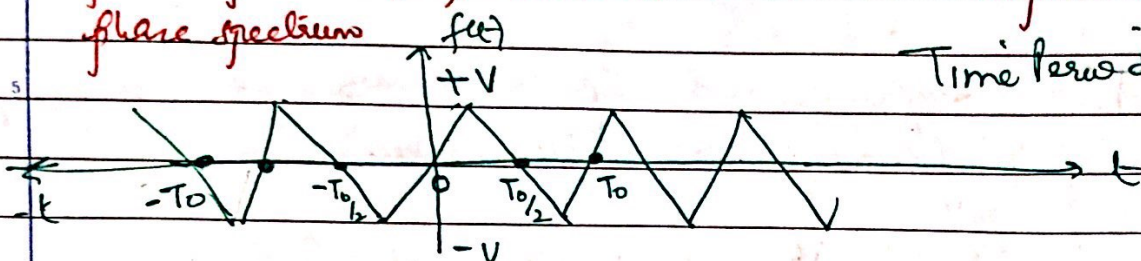 phase spectrum f(t)
Time Period
5
+V
-T₀ -T₀/2 0 T₀/2 T₀ t
-t
-V